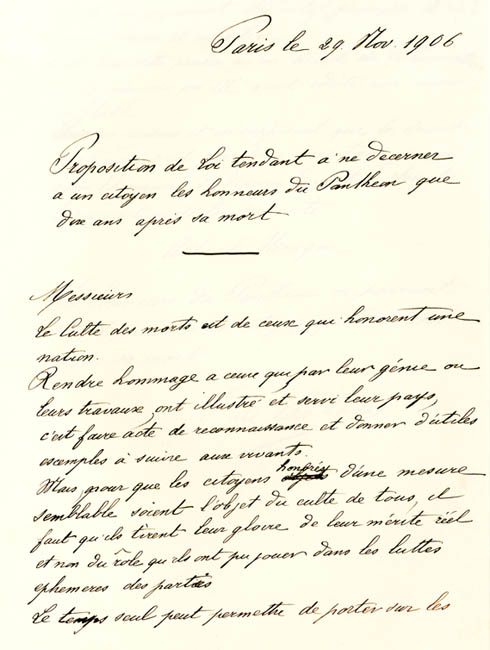 Paris le 29 Nov. 1906
Proposition de Loi tendant à ne decerner
a un citoyen les honneurs du Pantheon que
dix ans après sa mort
Messieurs
Le Culte des morts est de ceux qui honorent une
nation.
Rendre hommage a ceux qui par leur génie ou
leurs travaux, ont illustré et servi leur pays,
c'est faire acte de reconnaissance et donner d'utiles
exemples à suivre aux vivants.
Mais, pour que les citoyens honorés d'une mesure
semblable soient l'objet du culte de tous, il
faut qu'ils tirent leur gloire de leur mérite réel
et non du rôle qu'ils ont pu jouer dans les luttes
ephemeres des partis
Le temps seul peut permettre de porter sur les